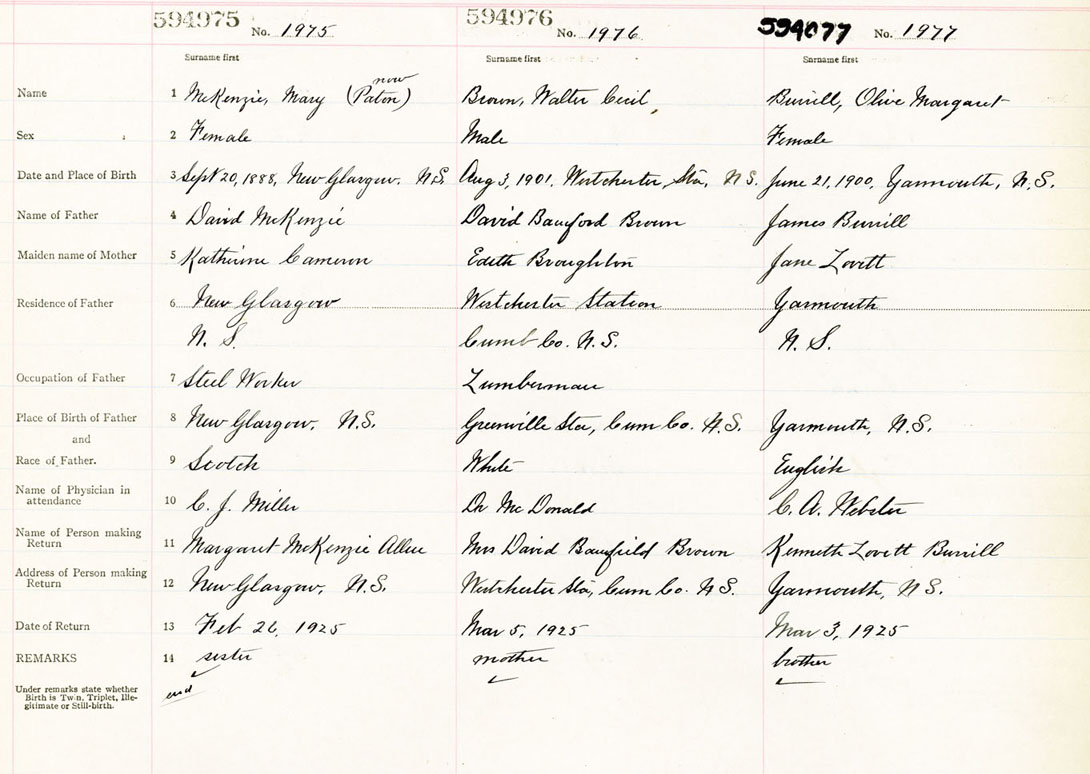 594975 No. 1975 594976 No. 1976 594977 No. 1977
Surname first Surname first Surname first
now
Name 1 McKenzie, Mary (Paton) Brown, Walter Cecil, Burrill, Olive Margaret
Sex 2 Female Male Female
Date and Place of Birth 3 Sept 20, 1888, New Glasgow. N.S. Aug 3, 1901, Westchester Sta, N S. June 21, 1900, Yarmouth, N.S.
Name of Father 4 David McKenzie David Bamford Brown James Burrill
Maiden name of Mother 5 Katherine Cameron Edith Broughton Jane Lovitt
Residence of Father 6 New Glasgow Westchester Station Yarmouth
N. S. Cumb Co. N.S. N. S.
Occupation of Father 7 Steel Worker Lumberman
Place of Birth of Father 8 New Glasgow, N.S. Greenville Sta, Cum Co. N.S. Yarmouth, N.S.
and
Race of Father. 9 Scotch White English
Name of Physician in
attendance 10 C. J. Miller Dr McDonald C. A. Webster
Name of Person making
Return 11 Margaret McKenzie Allen Mrs David Bamfield Brown Kenneth Lovett Burrill
Address of Person making
Return 12 New Glasgow, N.S. Westchester Sta, Cum Co. N S. Yarmouth, N S.
Date of Return 13 Feb 26, 1925 Mar 5, 1925 Mar 3, 1925
REMARKS 14 sister mother brother
Under remarks state whether
Birth is Twin, Triplet, Ille-
gitimate or Still-birth.
end